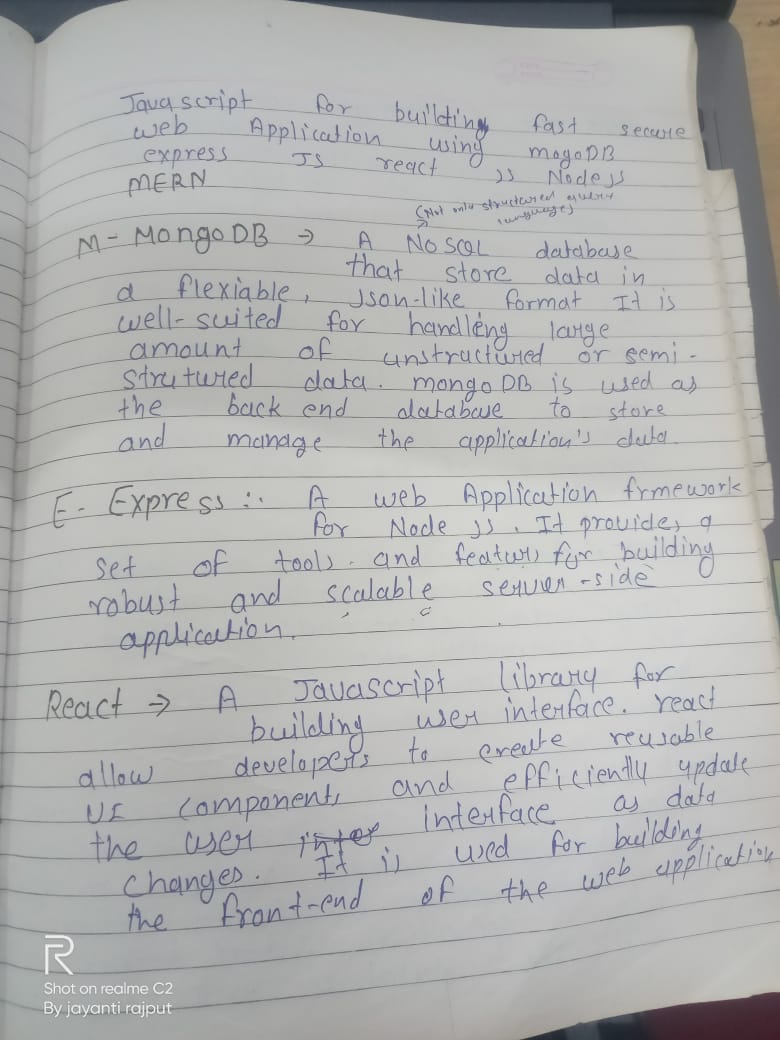 Javascript for building fast secure
web Application using mogoDB
express JS react JS Node JS
MERN
(Not only structured query
language)
M - MongoDB → A NoSQL database
that store data in
a flexiable, Json-like format It is
well-suited for handling large
amount of unstructured or semi-
strutured data. mongoDB is used as
the back end database to store
and manage the application's data.
E. Express :. A web Application frmework
for Node JS. It provides a
set of tools. and features for building
robust and scalable server-side
application.
React → A Javascript library for
building user interface. react
allow developers to create reusable
UI components and efficiently update
the user inter interface as data
changes. It is used for building
the front-end of the web application
R
Shot on realme C2
By jayanti rajput